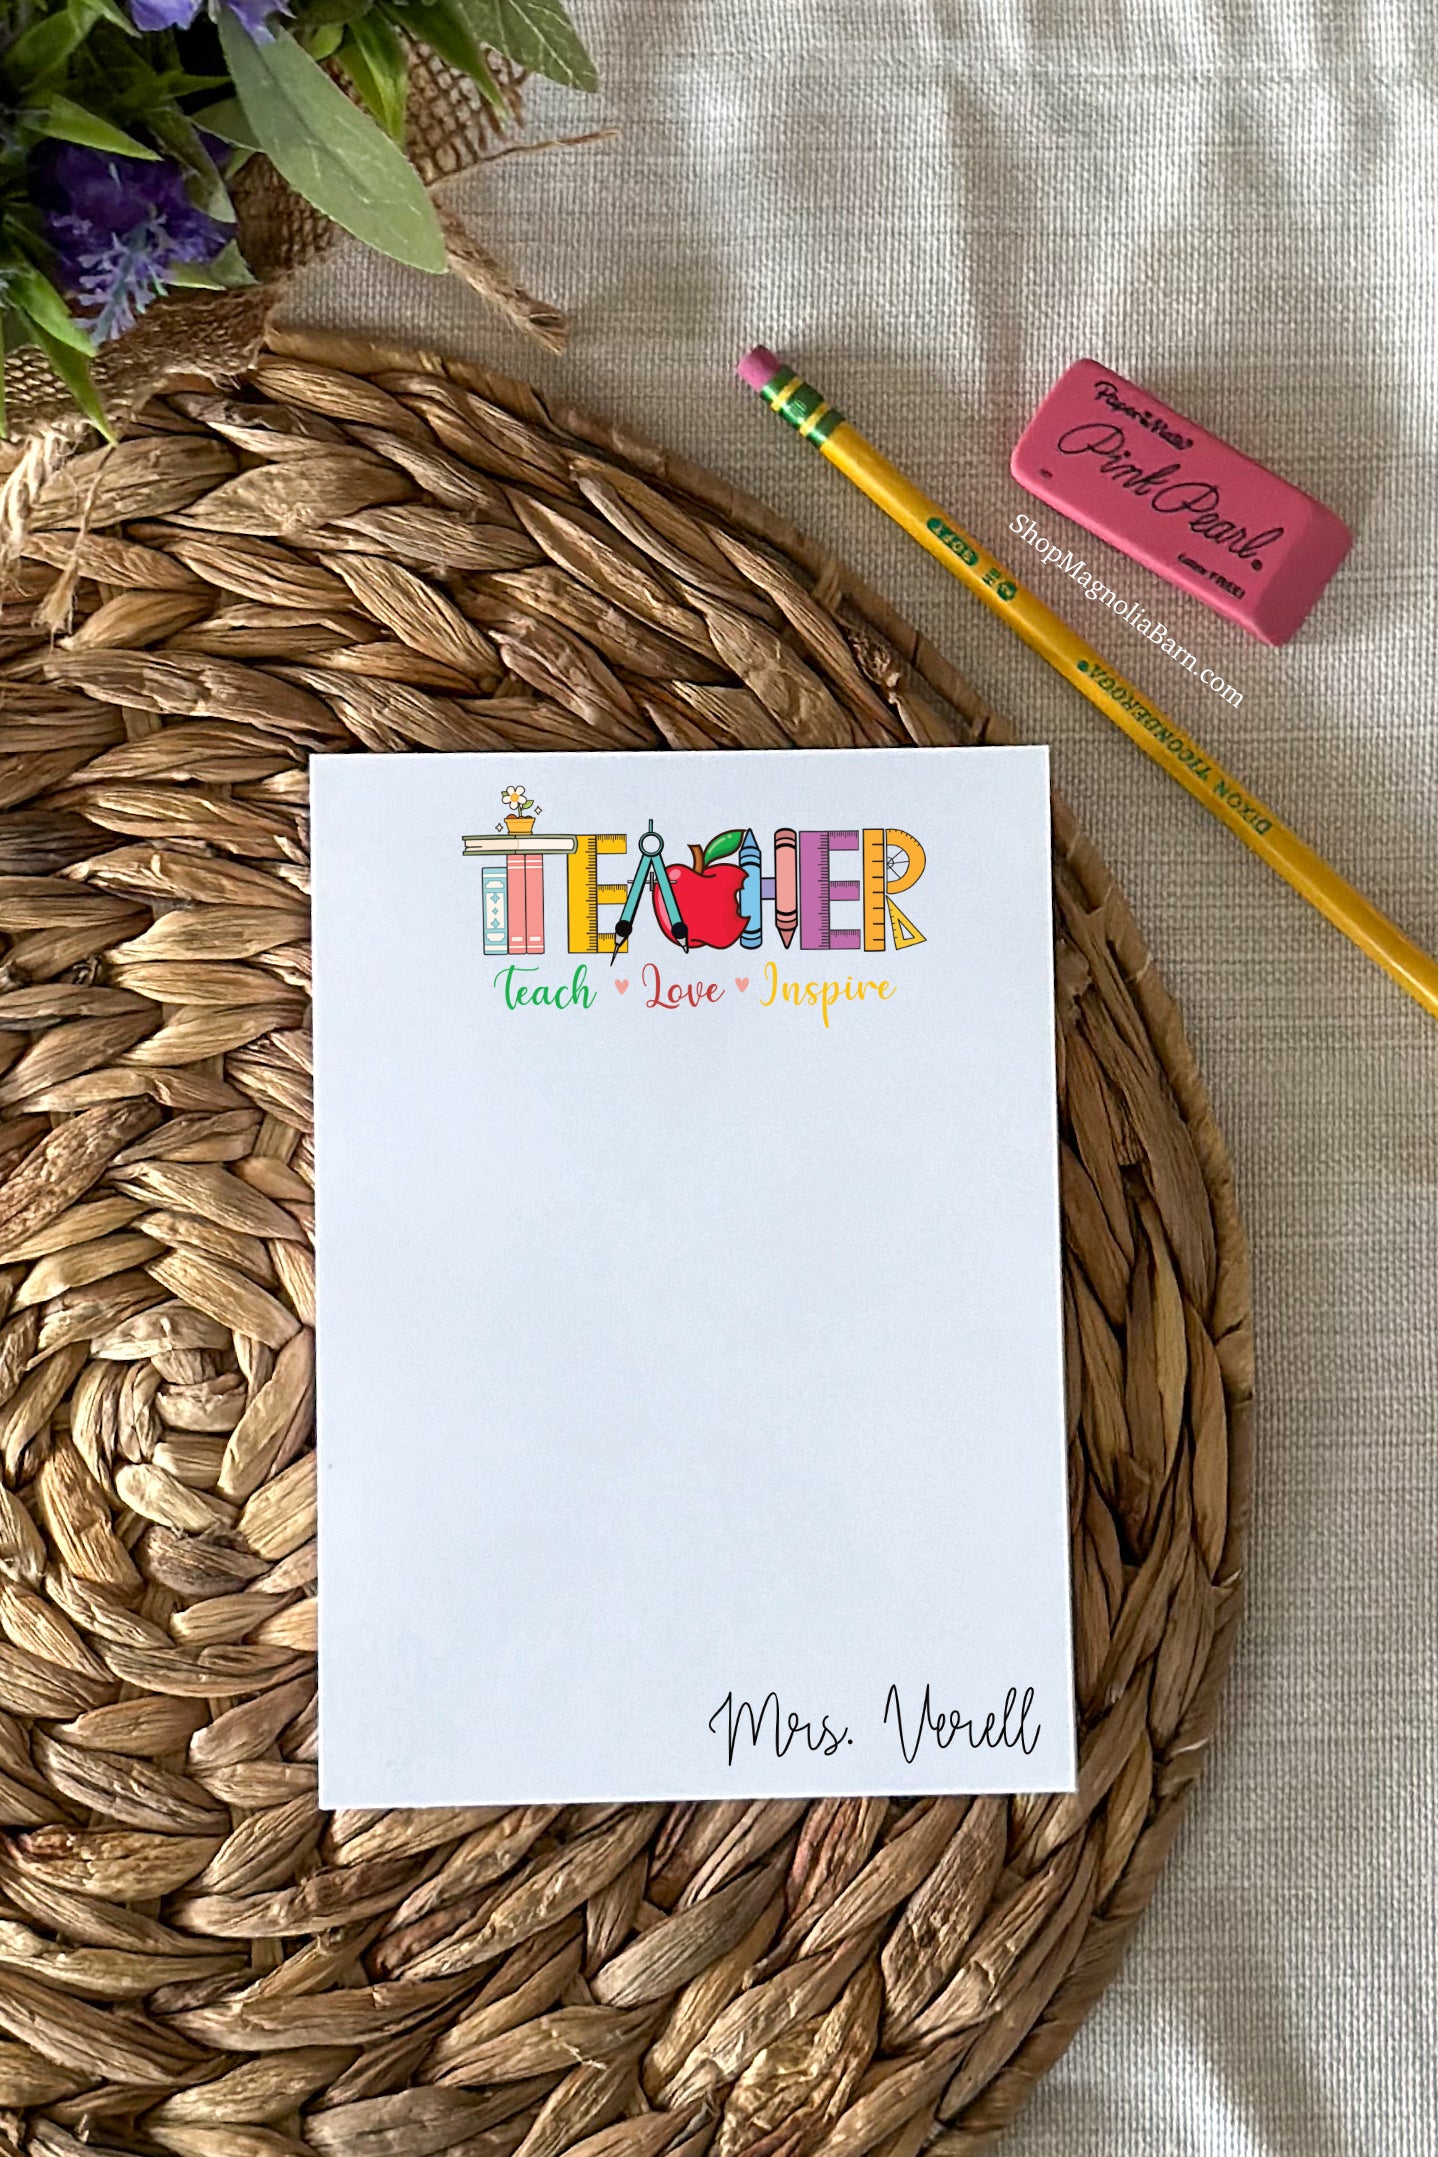 Paper Mate®
Pink Pearl®
Latex FREE!
ShopMagnoliaBarn.com
DIXON TICONDEROGA®
TEACHER
Teach ♥ Love ♥ Inspire
Mrs. Verell